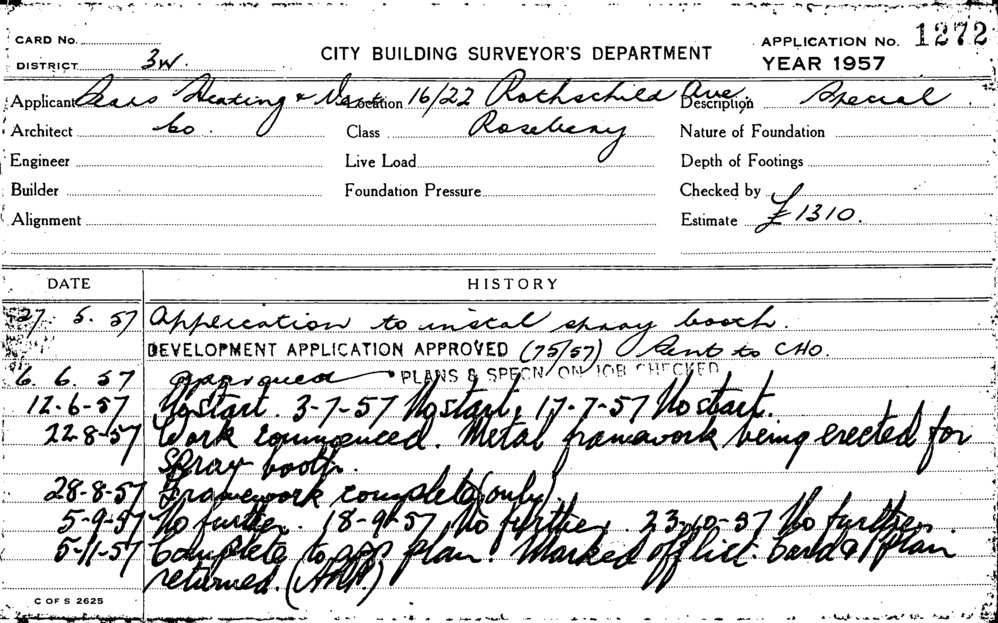 CARD No.
DISTRICT 3W.
CITY BUILDING SURVEYOR'S DEPARTMENT
APPLICATION No. 1272
YEAR 1957
Applicant Sears Heating & Vent Location 16/22 Rothschild Ave. Description Special
Architect Co. Class Rosebery Nature of Foundation
Engineer Live Load Depth of Footings
Builder Foundation Pressure Checked by
Alignment Estimate £1310.
DATE HISTORY
27. 5. 57 Application to instal spray booth.
DEVELOPMENT APPLICATION APPROVED (75/57) Sent to CHO.
6. 6. 57 approved PLANS & SPECN ON JOB CHECKED
12-6-57 No start. 3-7-57 No start, 17-7-57 No start.
22-8-57 Work commenced. Metal framework being erected for
spray booth.
28-8-57 Framework complete (only).
5-9-57 No further. 18-9-57 No further. 23-10-57 No further.
5-11-57 Complete to app plan. Marked off list. Card & plan
returned.
C OF S 2625